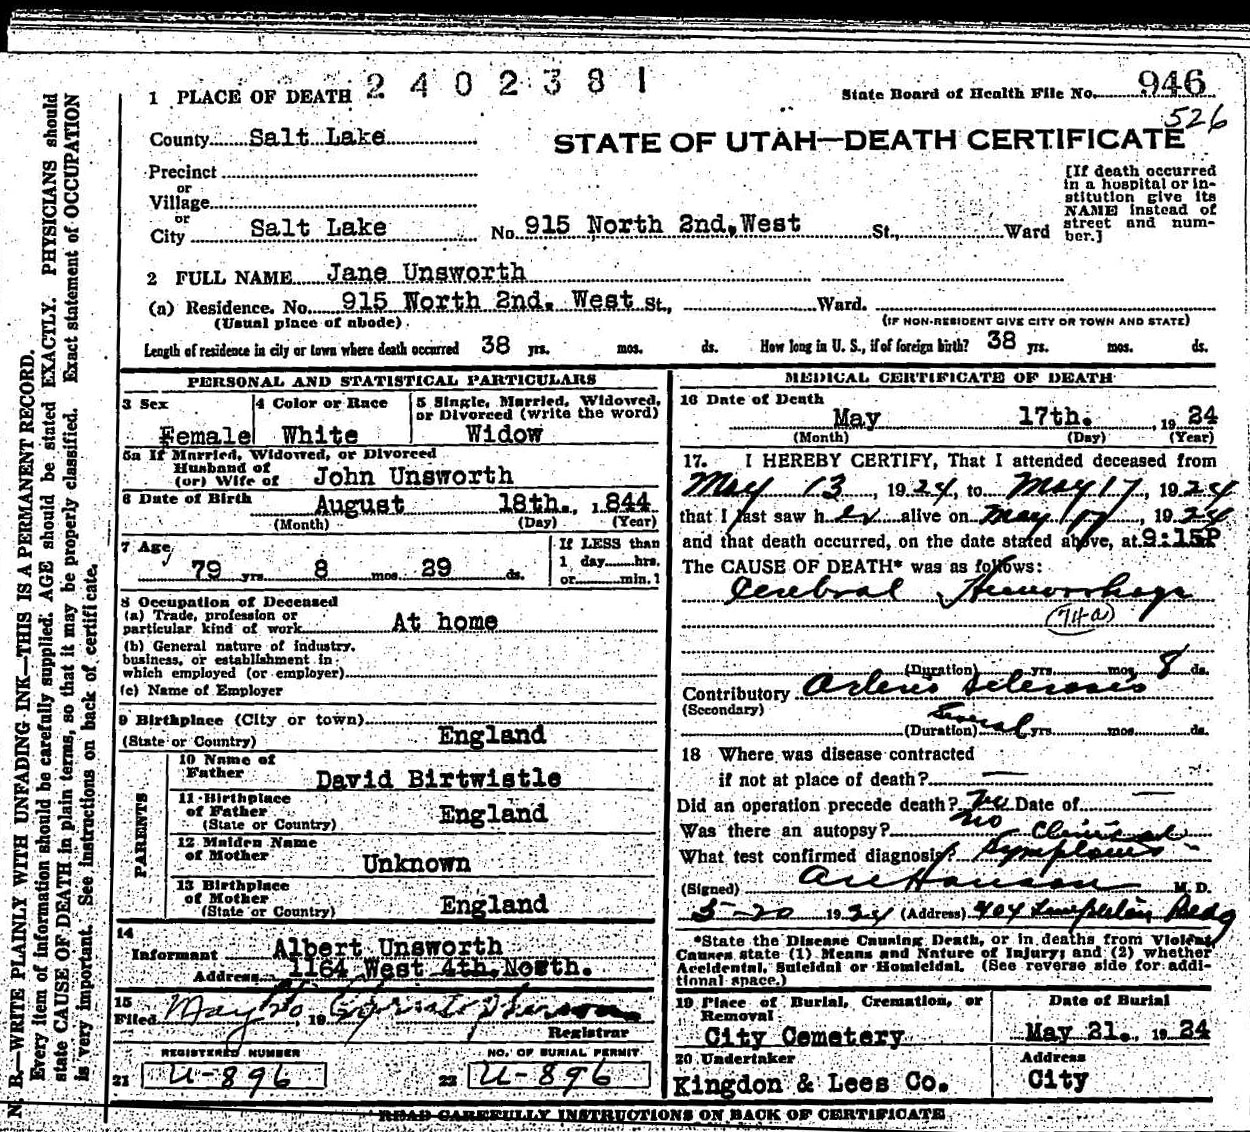 N. B.—WRITE PLAINLY WITH UNFADING INK—THIS IS A PERMANENT RECORD.
Every item of information should be carefully supplied. AGE should be stated EXACTLY. PHYSICIANS should
state CAUSE OF DEATH in plain terms, so that it may be properly classified. Exact statement of OCCUPATION
is very important. See instructions on back of certificate.
2402381
1 PLACE OF DEATH
State Board of Health File No. 946
526
County Salt Lake
STATE OF UTAH—DEATH CERTIFICATE
Precinct
or
Village
or
City Salt Lake No. 915 North 2nd. West St., Ward
[If death occurred
in a hospital or in-
stitution give its
NAME instead of
street and num-
ber.]
2 FULL NAME Jane Unsworth
(a) Residence. No. 915 North 2nd. West St., Ward.
(Usual place of abode)
(IF NON-RESIDENT GIVE CITY OR TOWN AND STATE)
Length of residence in city or town where death occurred 38 yrs. mos. ds. How long in U. S., if of foreign birth? 38 yrs. mos. ds.
PERSONAL AND STATISTICAL PARTICULARS
3 Sex
Female
4 Color or Race
White
5 Single, Married, Widowed,
or Divorced (write the word)
Widow
5a If Married, Widowed, or Divorced
Husband of
(or) Wife of John Unsworth
6 Date of Birth August 18th., 1844
(Month) (Day) (Year)
7 Age
79 yrs 8 mos. 29 ds.
If LESS than
1 day hrs.
or min.
8 Occupation of Deceased
(a) Trade, profession or
particular kind of work At home
(b) General nature of industry,
business, or establishment in
which employed (or employer)
(c) Name of Employer
9 Birthplace (City or town)
(State or Country) England
PARENTS
10 Name of
Father David Birtwistle
11 Birthplace
of Father England
(State or Country)
12 Maiden Name
of Mother Unknown
13 Birthplace
of Mother England
(State or Country)
14
Informant Albert Unsworth
Address 1164 West 4th. North.
15
Filed May 20 19
Registrar
REGISTERED NUMBER
21 U-896
NO. OF BURIAL PERMIT
22 U-896
MEDICAL CERTIFICATE OF DEATH
16 Date of Death
May 17th. , 1924
(Month) (Day) (Year)
17. I HEREBY CERTIFY, That I attended deceased from
May 13, 1924, to May 17, 1924
that I last saw her alive on May 17, 1924
and that death occurred, on the date stated above, at 9:15P
The CAUSE OF DEATH* was as follows:
Cerebral Hemorrhage
(74a)
(Duration) yrs. mos. 8 ds.
Contributory Arterio Sclerosis
(Secondary)
(Duration) Several yrs. mos. ds.
18 Where was disease contracted
if not at place of death? —
Did an operation precede death? No Date of —
Was there an autopsy? No
What test confirmed diagnosis? Clinical Symptoms
(Signed) M. D.
5-20 1924 (Address) 404 Templeton Bldg
*State the Disease Causing Death, or in deaths from Violent
Causes state (1) Means and Nature of Injury; and (2) whether
Accidental, Suicidal or Homicidal. (See reverse side for addi-
tional space.)
19 Place of Burial, Cremation, or
Removal
City Cemetery
Date of Burial
May 21. 1924
20 Undertaker
Kingdon & Lees Co.
Address
City
READ CAREFULLY INSTRUCTIONS ON BACK OF CERTIFICATE